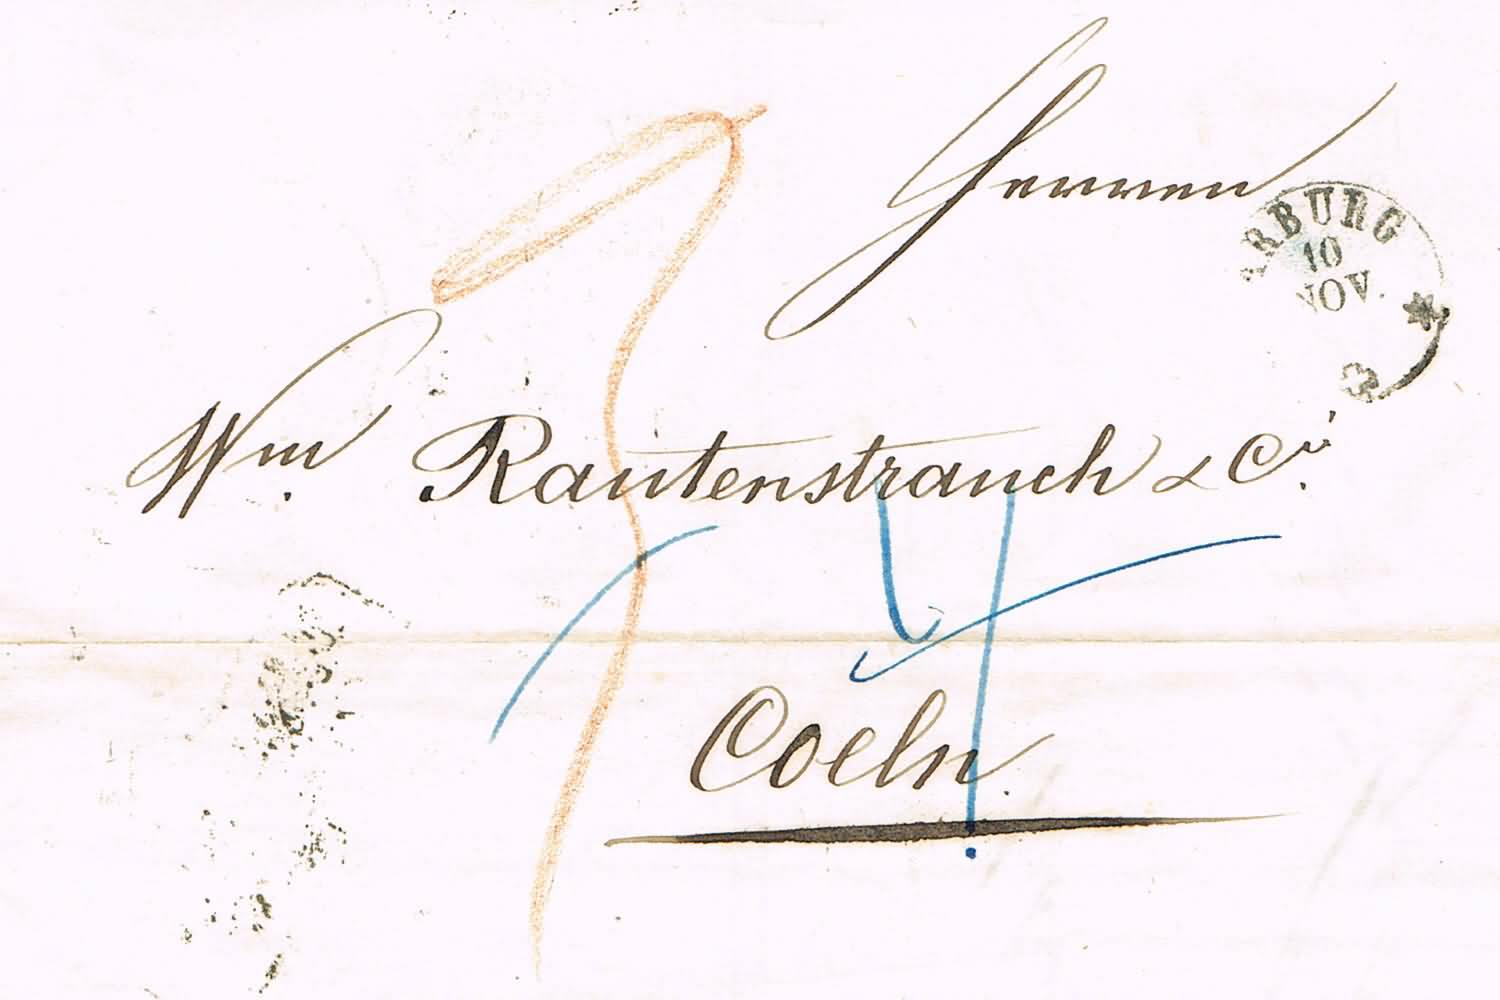 Herren
ARBURG
10
NOV.
Wm. Rautenstrauch & Cie.
4
Coeln.